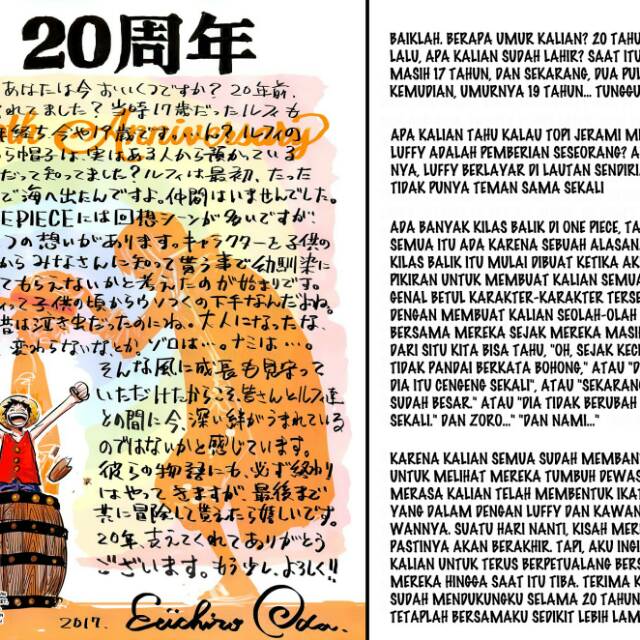 20周年
あなたは今おいくつですか? 20年前、
れてました? 当時17歳だったルフィも
年経ち今や19歳です。いん? ルフィの
th Anniversary
ら帽子は、実はある人から預かっている
だって知ってました? ルフィは最初、たった
で海へ出たんですよ。仲間はいませんでした。
EPIECEには回想シーンが多いですが
つの想いがあります。キャラクターを子供の
からみなさんに知って貰う事で幼馴染に
てもらえないかと考えたのが始まりです。
って子供の頃からウソつくの下手なんだよね。
昔は泣き虫だったのにね。大人になったな、
変わらないな、とか。ゾロは…。ナミは…。
そんな風に成長も見守って
いただけたからこそ、皆さんとルフィ達
との間に今、深い絆がうまれている
のではないかと感じています。
彼らの物語にも、必ず終わり
はやってきますが、最後まで
共に冒険して貰えたら嬉しいです。
20年、支えてくれてありがとう
ございます。もう少し、よろしく!!
2017. Eiichiro Oda.
BAIKLAH. BERAPA UMUR KALIAN? 20 TAHU
LALU, APA KALIAN SUDAH LAHIR? SAAT ITU
MASIH 17 TAHUN, DAN SEKARANG, DUA PUL
KEMUDIAN, UMURNYA 19 TAHUN... TUNGGU
APA KALIAN TAHU KALAU TOPI JERAMI MI
LUFFY ADALAH PEMBERIAN SESEORANG? A
NYA, LUFFY BERLAYAR DI LAUTAN SENDIRI
TIDAK PUNYA TEMAN SAMA SEKALI
ADA BANYAK KILAS BALIK DI ONE PIECE, TA
SEMUA ITU ADA KARENA SEBUAH ALASAN.
KILAS BALIK ITU MULAI DIBUAT KETIKA AK
PIKIRAN UNTUK MEMBUAT KALIAN SEMUA
GENAL BETUL KARAKTER-KARAKTER TERSE
DENGAN MEMBUAT KALIAN SEOLAH-OLAH
BERSAMA MEREKA SEJAK MEREKA MASIH
DARI SITU KITA BISA TAHU, "OH, SEJAK KECI
TIDAK PANDAI BERKATA BOHONG," ATAU "D
DIA ITU CENGENG SEKALI", ATAU "SEKARANG
SUDAH BESAR." ATAU "DIA TIDAK BERUBAH
SEKALI." DAN ZORO..." "DAN NAMI..."
KARENA KALIAN SEMUA SUDAH MEMBANT
UNTUK MELIHAT MEREKA TUMBUH DEWAS
MERASA KALIAN TELAH MEMBENTUK IKAT
YANG DALAM DENGAN LUFFY DAN KAWAN
WANNYA. SUATU HARI NANTI, KISAH MERE
PASTINYA AKAN BERAKHIR. TAPI, AKU INGI
KALIAN UNTUK TERUS BERPETUALANG BERS
MEREKA HINGGA SAAT ITU TIBA. TERIMA K
SUDAH MENDUKUNGKU SELAMA 20 TAHUN
TETAPLAH BERSAMAKU SEDIKIT LEBIH LAM